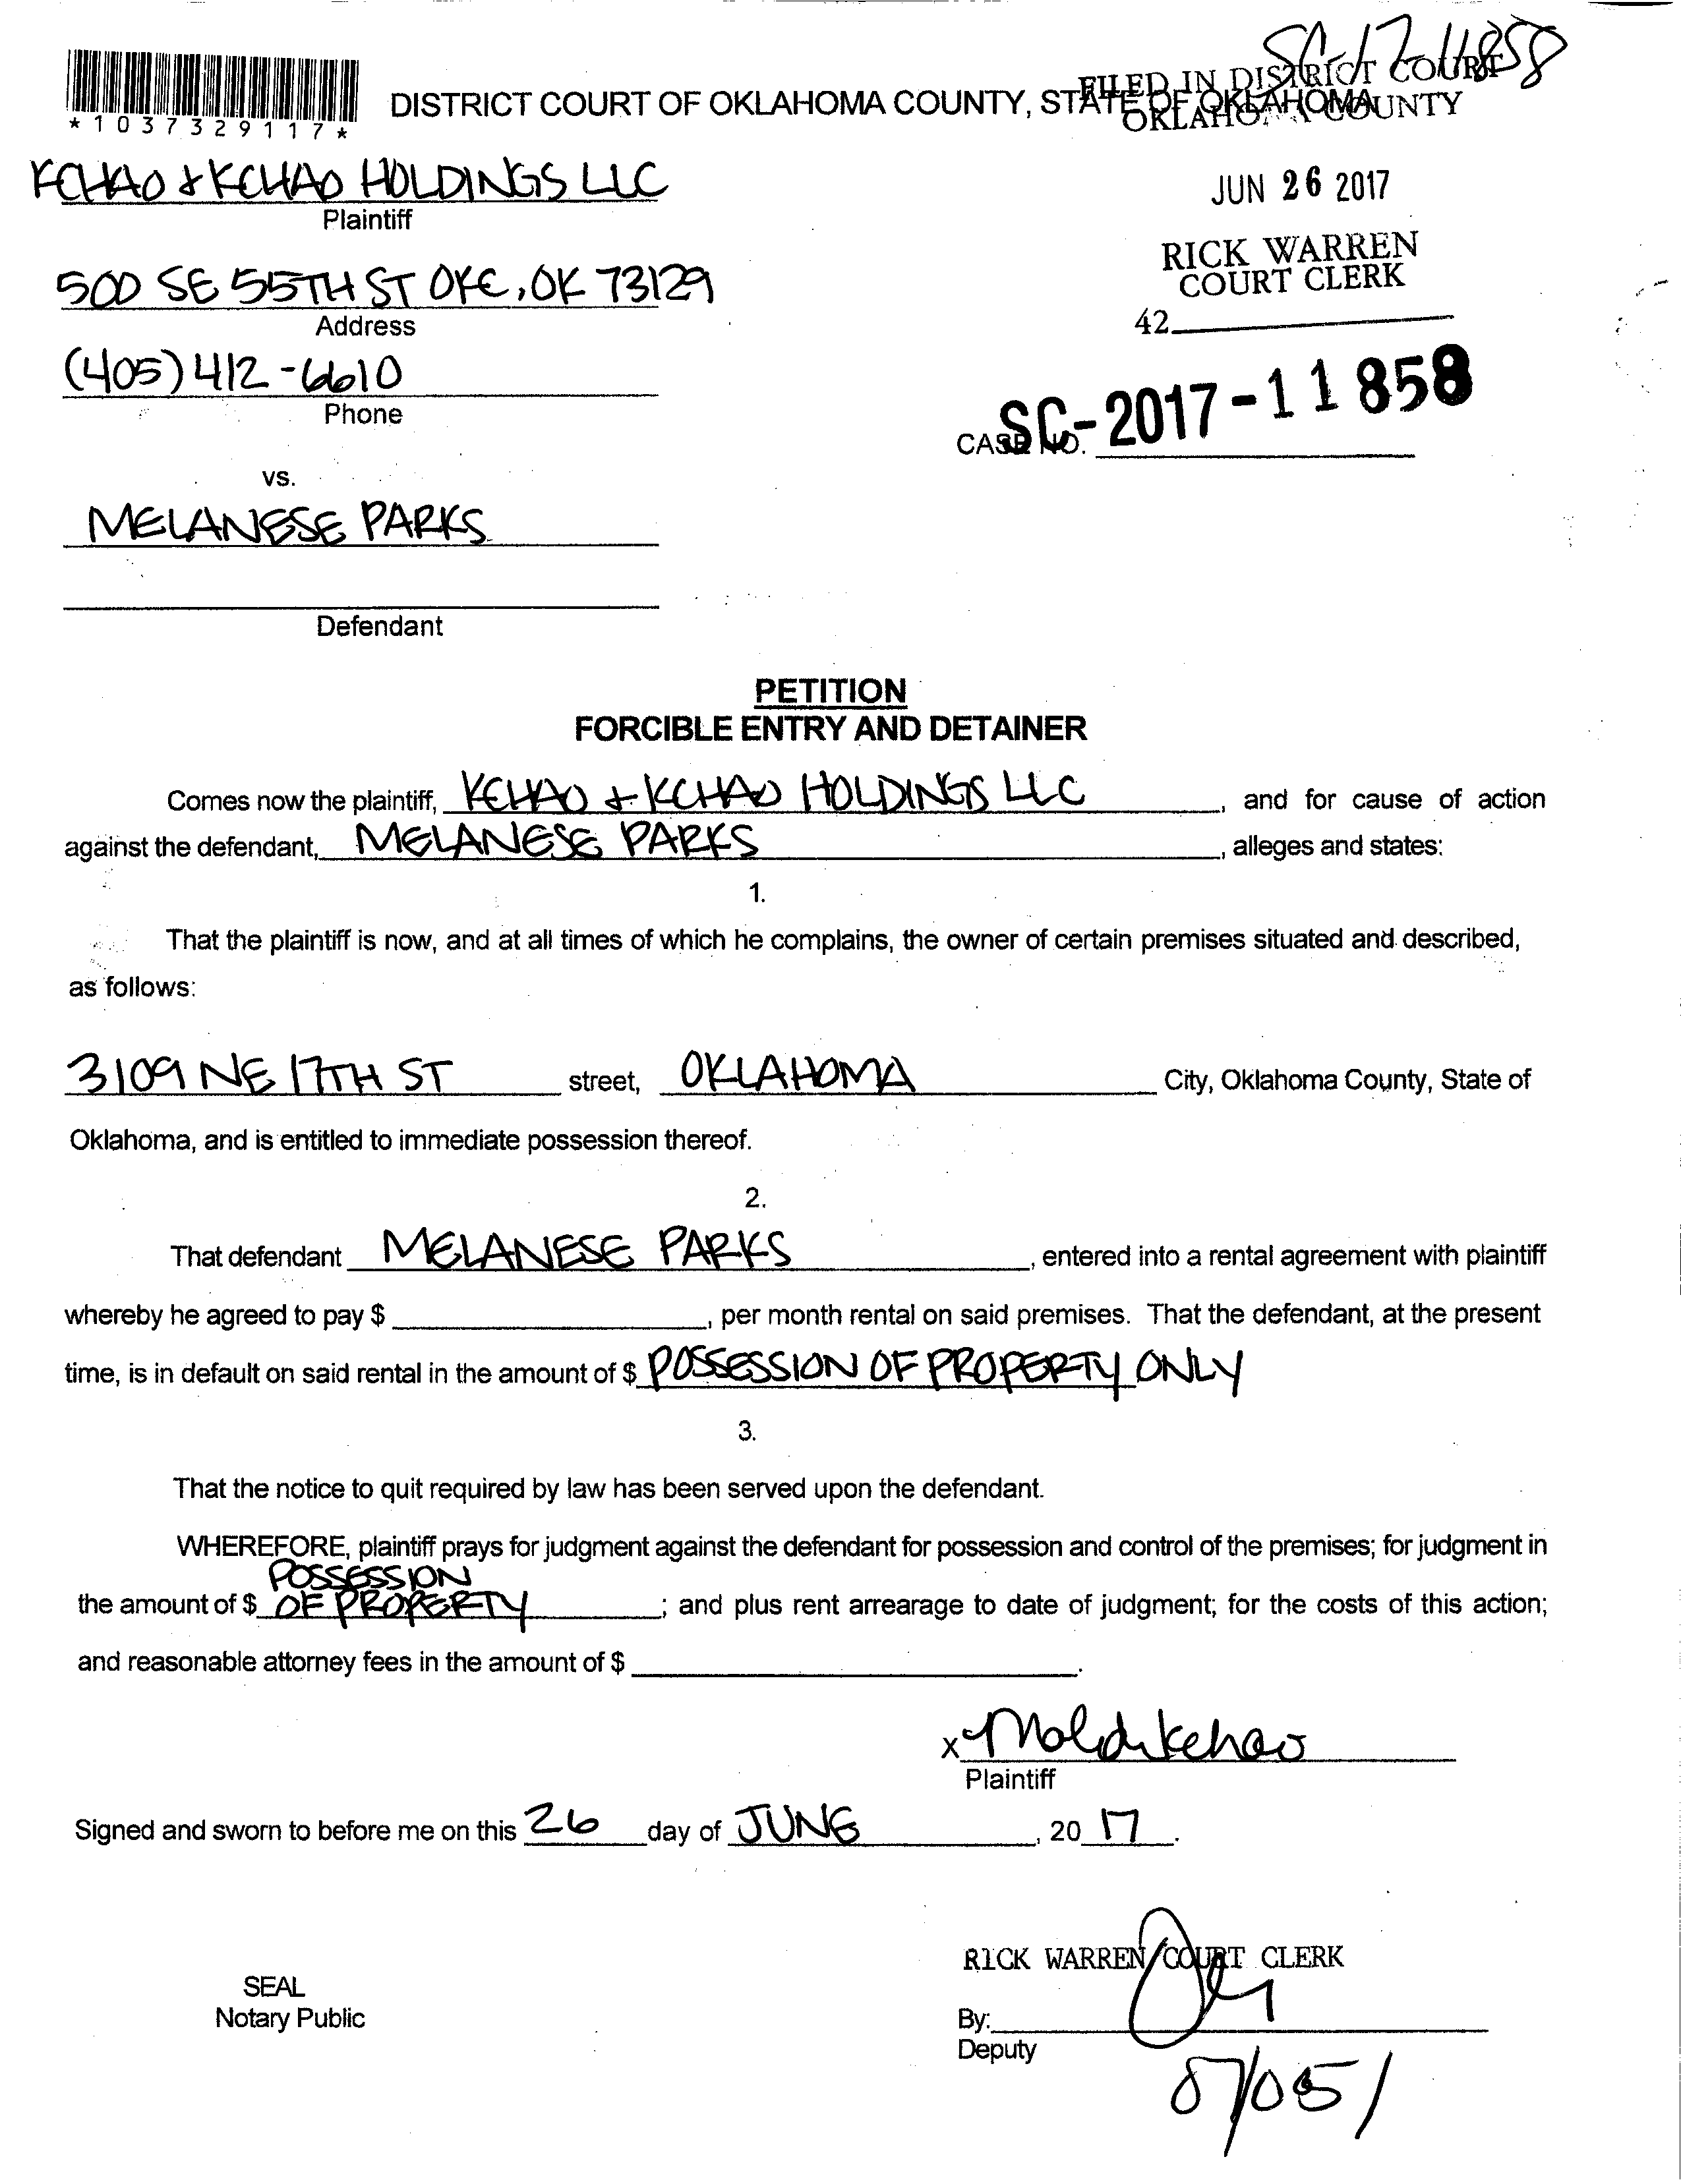 SC-17-11858
FILED IN DISTRICT COURT
OKLAHOMA COUNTY
DISTRICT COURT OF OKLAHOMA COUNTY, STATE OF OKLAHOMA
*1037329117*
KCHAO & KCHAO HOLDINGS LLC
Plaintiff
JUN 26 2017
RICK WARREN
COURT CLERK
42
500 SE 55TH ST OKC, OK 73129
Address
(405) 412-6610
Phone
CASE NO. SC-2017-11858
vs.
MELANESE PARKS
Defendant
PETITION
FORCIBLE ENTRY AND DETAINER
Comes now the plaintiff, KCHAO & KCHAO HOLDINGS LLC, and for cause of action
against the defendant, MELANESE PARKS, alleges and states:
1.
That the plaintiff is now, and at all times of which he complains, the owner of certain premises situated and described,
as follows:
3109 NE 17TH ST street, OKLAHOMA City, Oklahoma County, State of
Oklahoma, and is entitled to immediate possession thereof.
2.
That defendant MELANESE PARKS, entered into a rental agreement with plaintiff
whereby he agreed to pay $ , per month rental on said premises. That the defendant, at the present
time, is in default on said rental in the amount of $ POSSESSION OF PROPERTY ONLY
3.
That the notice to quit required by law has been served upon the defendant.
WHEREFORE, plaintiff prays for judgment against the defendant for possession and control of the premises; for judgment in
POSSESSION
the amount of $ OF PROPERTY; and plus rent arrearage to date of judgment; for the costs of this action;
and reasonable attorney fees in the amount of $ .
x
Plaintiff
Signed and sworn to before me on this 26 day of JUNE, 20 17.
RICK WARREN COURT CLERK
SEAL
Notary Public
By:
Deputy